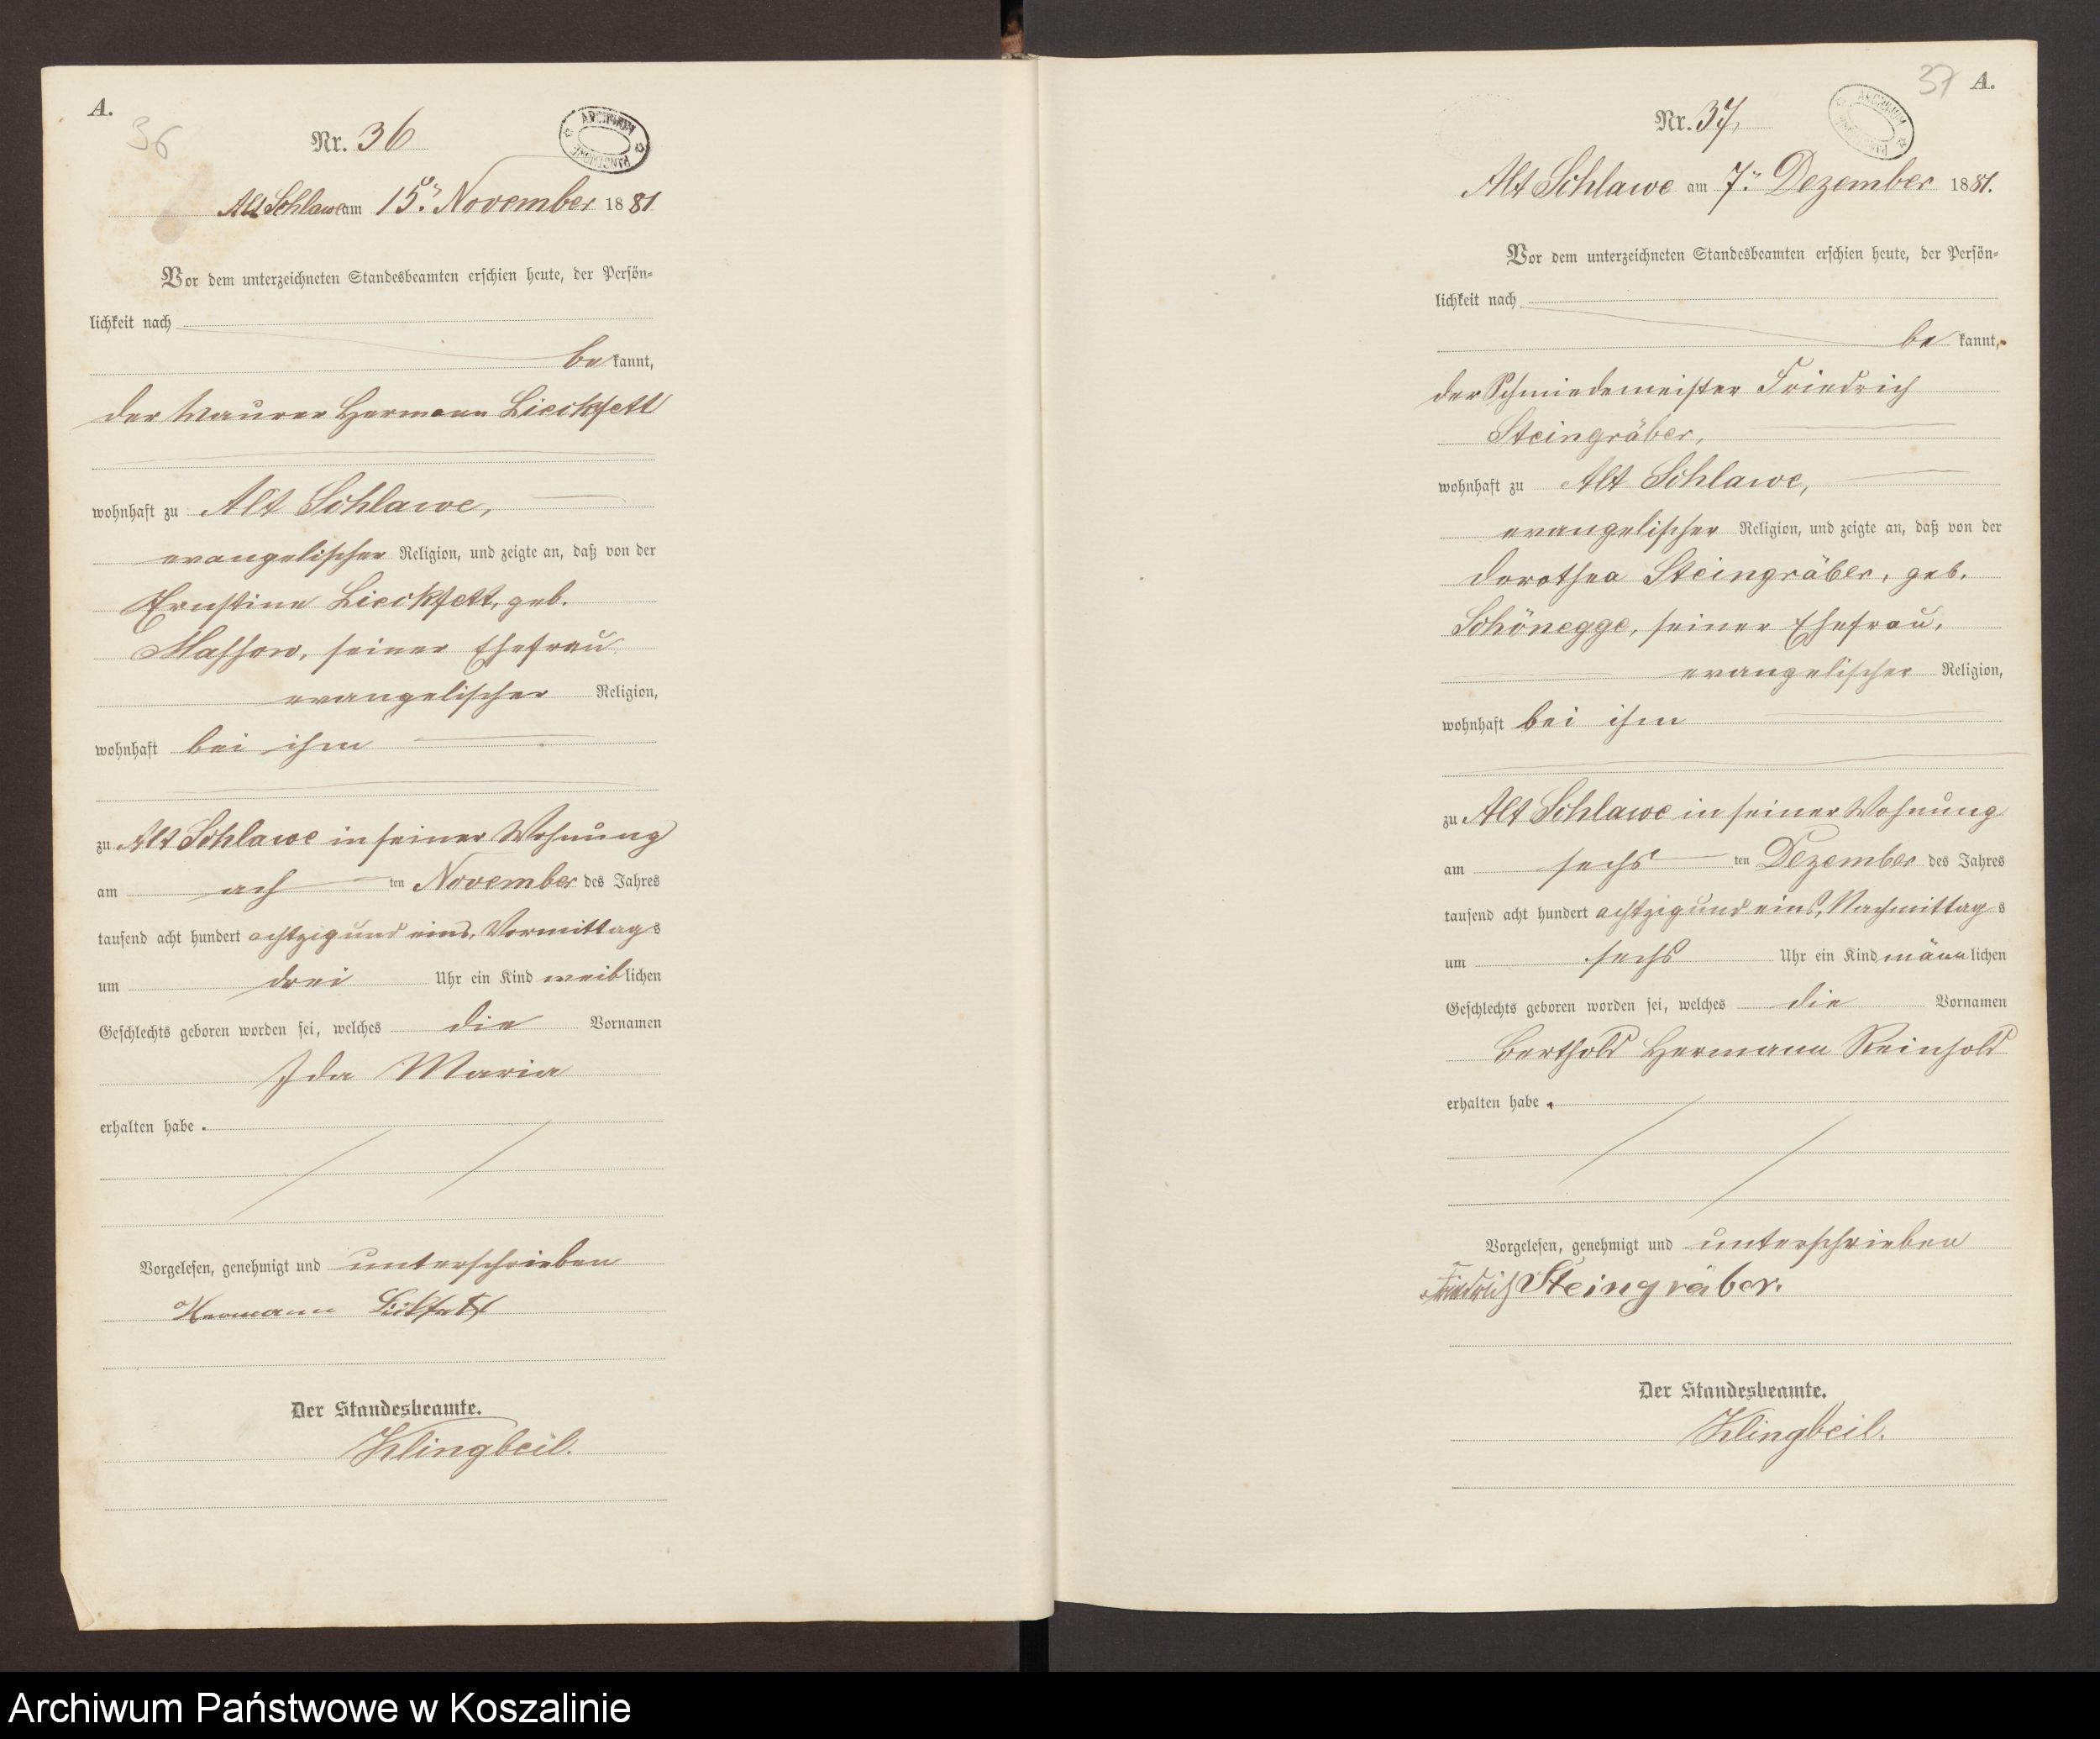 A.
36
Nr. 36
ARCHIWUM PAŃSTWOWE
Alt Schlawe am 15ten November 1881
Vor dem unterzeichneten Standesbeamten erschien heute, der Persön-
lichkeit nach
bekannt,
der Maurer Hermann Lieckfett
wohnhaft zu Alt Schlawe,
evangelischer Religion, und zeigte an, daß von der
Ernstine Lieckfett, geb.
Massow, seiner Ehefrau
evangelischer Religion,
wohnhaft bei ihm
zu Alt Schlawe in seiner Wohnung
am ach ten November des Jahres
tausend acht hundert achtzig und eins, Vormittags
um drei Uhr ein Kind weiblichen
Geschlechts geboren worden sei, welches die Vornamen
Ida Maria
erhalten habe.
Vorgelesen, genehmigt und unterschrieben
Hermann
Der Standesbeamte.
Klingbeil.
37 A.
Nr. 37,
ARCHIWUM PAŃSTWOWE
Alt Schlawe am 7ten Dezember 1881.
Vor dem unterzeichneten Standesbeamten erschien heute, der Persön-
lichkeit nach
bekannt,
der Schmiedemeister Friedrich
Steingräber,
wohnhaft zu Alt Schlawe,
evangelischer Religion, und zeigte an, daß von der
Dorothea Steingräber, geb.
Schönegge, seiner Ehefrau,
evangelischer Religion,
wohnhaft bei ihm
zu Alt Schlawe in seiner Wohnung
am sechs ten Dezember des Jahres
tausend acht hundert achtzig und eins, Nachmittags
um sechs Uhr ein Kind männlichen
Geschlechts geboren worden sei, welches die Vornamen
Berthold Hermann Reinhold
erhalten habe.
Vorgelesen, genehmigt und unterschrieben
Friedrich Steingräber.
Der Standesbeamte.
Klingbeil.
Archiwum Państwowe w Koszalinie